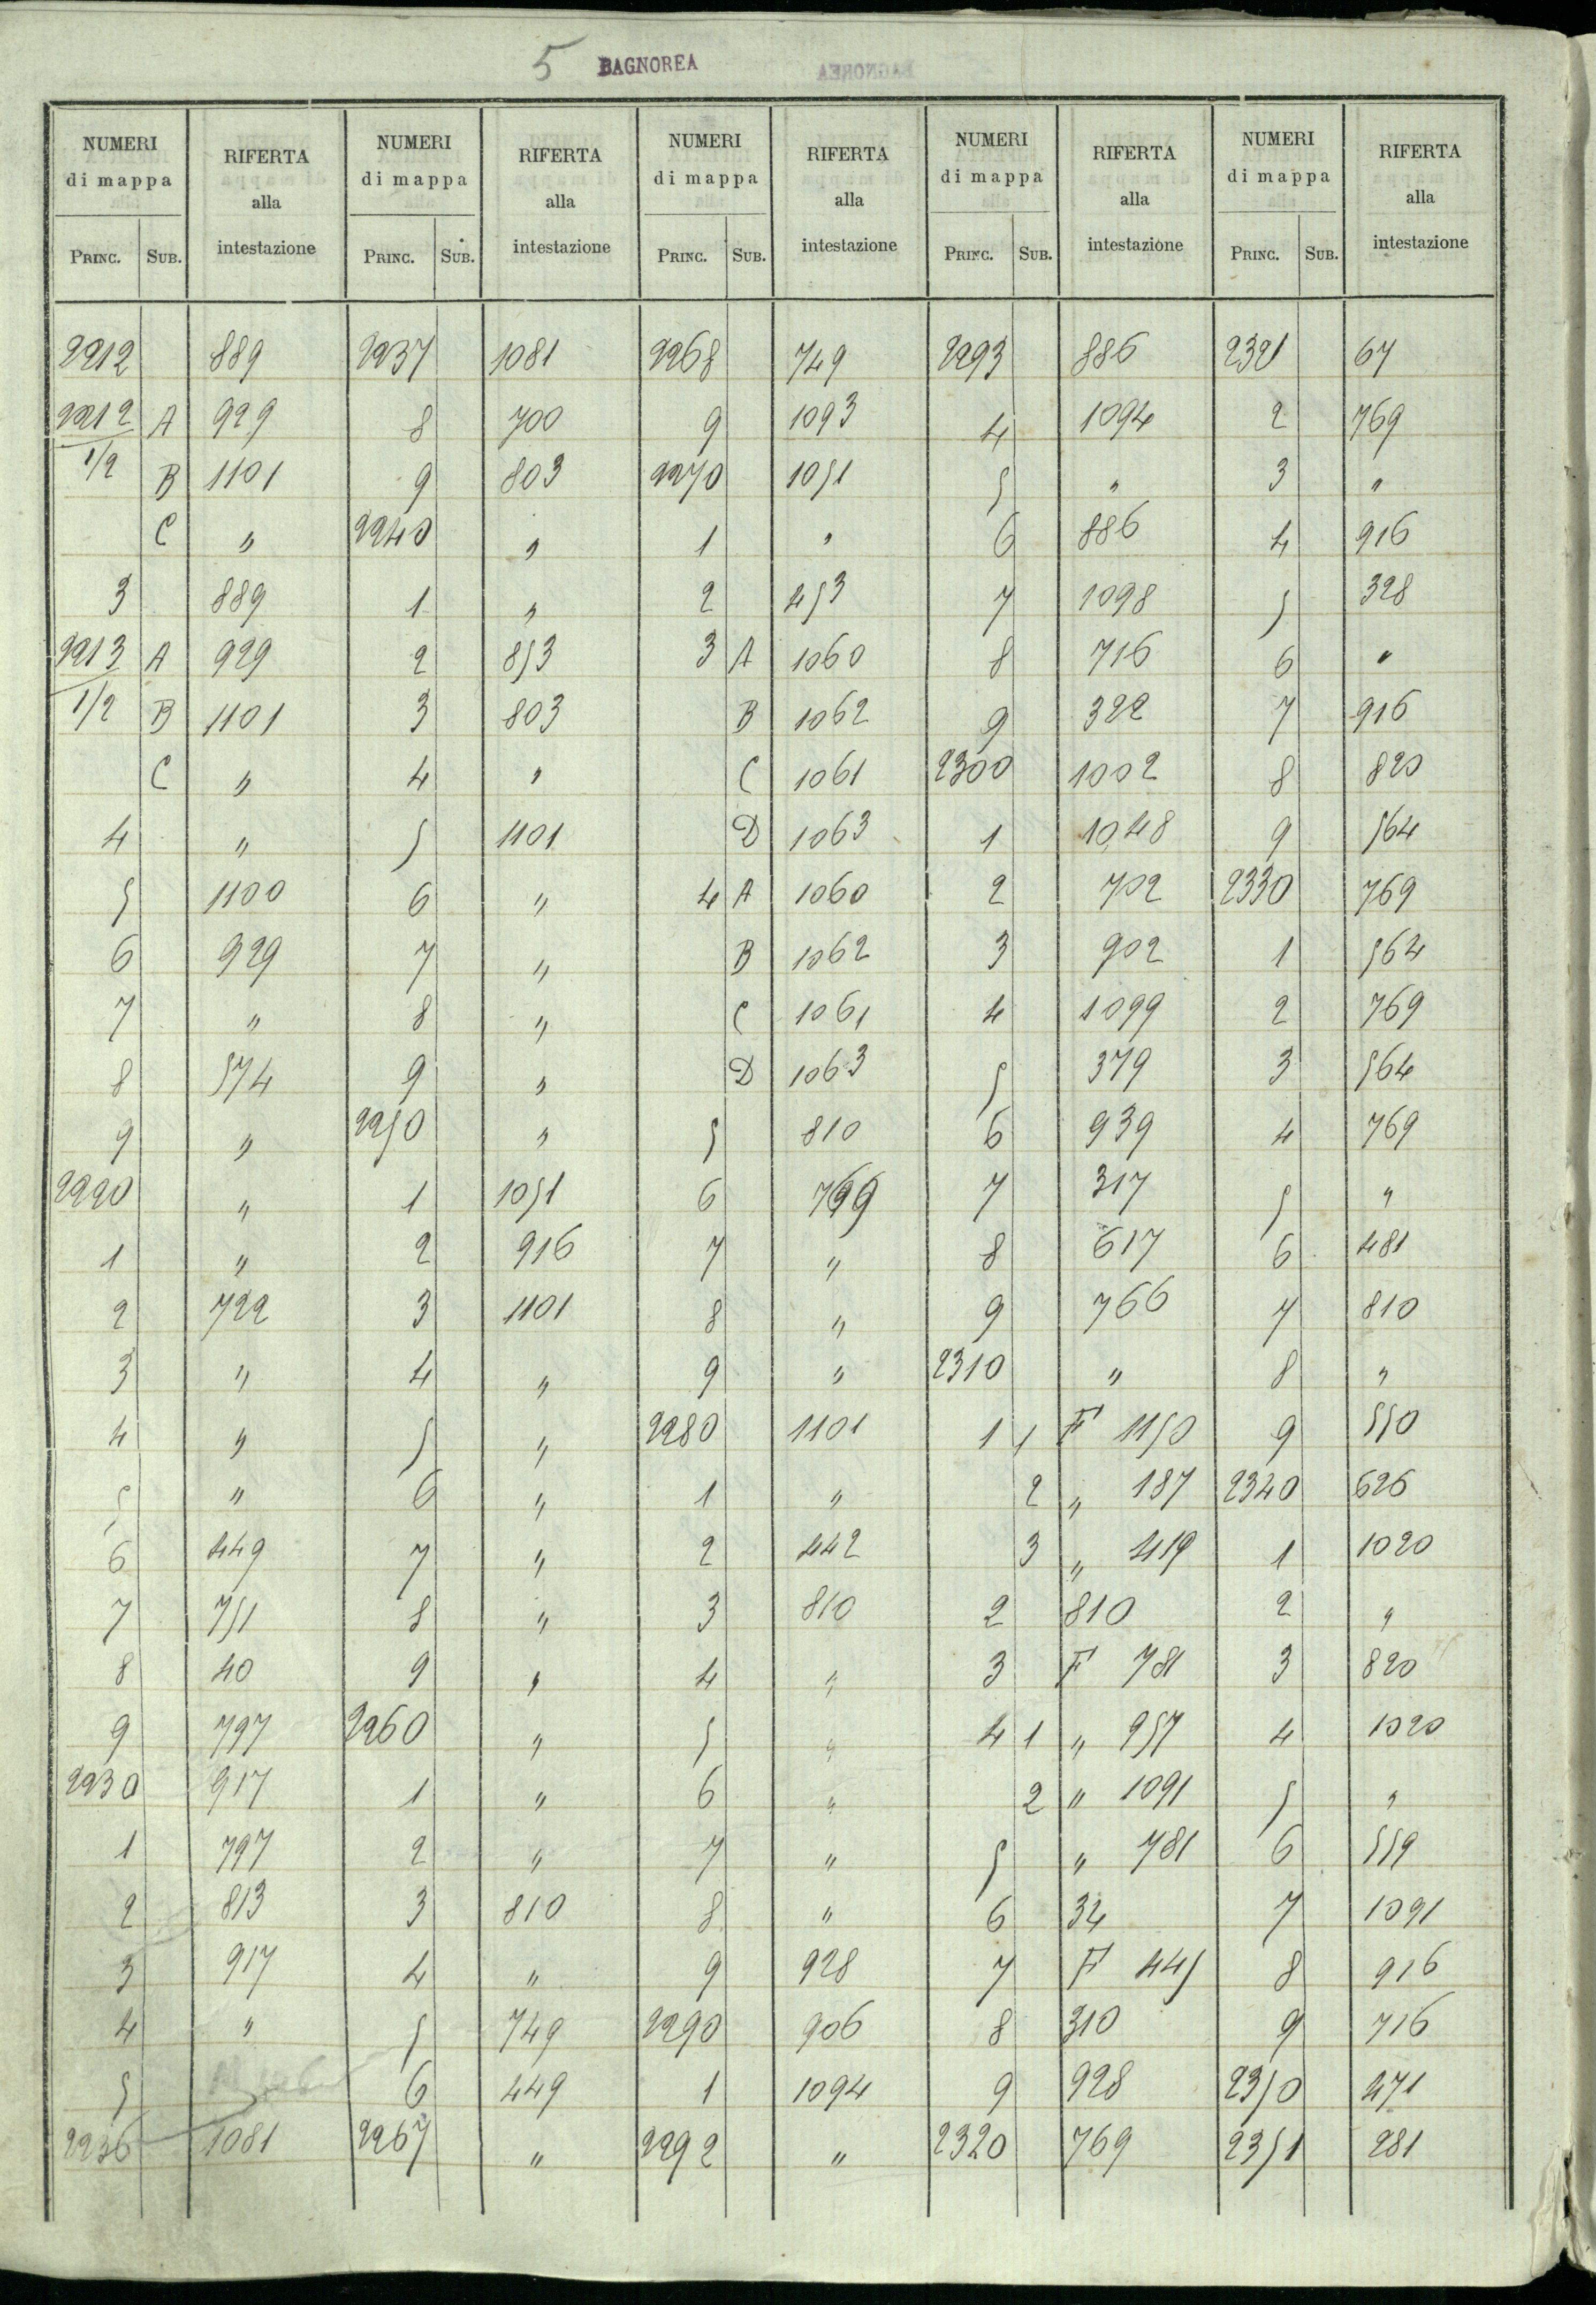 5 BAGNOREA
NUMERI di mappa | RIFERTA alla intestazione | NUMERI di mappa | RIFERTA alla intestazione | NUMERI di mappa | RIFERTA alla intestazione | NUMERI di mappa | RIFERTA alla intestazione | NUMERI di mappa | RIFERTA alla intestazione
PRINC. | SUB. | | PRINC. | SUB. | | PRINC. | SUB. | | PRINC. | SUB. | | PRINC. | SUB. |
2212 | | 889 | 2237 | | 1081 | 2268 | | 749 | 2293 | | 886 | 2321 | | 67
2212 | A | 929 | 8 | | 700 | 9 | | 1093 | 4 | | 1094 | 2 | | 769
1/2 | B | 1101 | 9 | | 803 | 2270 | | 1051 | 5 | | " | 3 | | "
| C | " | 2240 | | " | 1 | | " | 6 | | 886 | 4 | | 916
3 | | 889 | 1 | | " | 2 | | 453 | 7 | | 1098 | 5 | | 328
2213 | A | 929 | 2 | | 853 | 3 | A | 1060 | 8 | | 716 | 6 | | "
1/2 | B | 1101 | 3 | | 803 | | B | 1062 | 9 | | 322 | 7 | | 916
| C | " | 4 | | " | | C | 1061 | 2300 | | 1002 | 8 | | 820
4 | | " | 5 | | 1101 | | D | 1063 | 1 | | 1048 | 9 | | 564
5 | | 1100 | 6 | | " | 4 | A | 1060 | 2 | | 702 | 2330 | | 769
6 | | 929 | 7 | | " | | B | 1062 | 3 | | 902 | 1 | | 564
7 | | " | 8 | | " | | C | 1061 | 4 | | 1099 | 2 | | 769
8 | | 574 | 9 | | " | | D | 1063 | 5 | | 379 | 3 | | 564
9 | | " | 2250 | | " | 5 | | 810 | 6 | | 939 | 4 | | 769
2220 | | " | 1 | | 1051 | 6 | | 799 | 7 | | 317 | 5 | | "
1 | | " | 2 | | 916 | 7 | | " | 8 | | 617 | 6 | | 481
2 | | 722 | 3 | | 1101 | 8 | | " | 9 | | 766 | 7 | | 810
3 | | " | 4 | | " | 9 | | " | 2310 | | " | 8 | | "
4 | | " | 5 | | " | 2280 | | 1101 | 1 | 1 | F 1150 | 9 | | 550
5 | | " | 6 | | " | 1 | | " | | 2 | " 187 | 2340 | | 626
6 | | 449 | 7 | | " | 2 | | 442 | | 3 | " 419 | 1 | | 1020
7 | | 751 | 8 | | " | 3 | | 810 | 2 | | 810 | 2 | | "
8 | | 40 | 9 | | " | 4 | | " | 3 | | F 781 | 3 | | 820
9 | | 797 | 2260 | | " | 5 | | " | 4 | 1 | " 957 | 4 | | 1020
2230 | | 917 | 1 | | " | 6 | | " | | 2 | " 1091 | 5 | | "
1 | | 797 | 2 | | " | 7 | | " | 5 | | " 781 | 6 | | 559
2 | | 813 | 3 | | 810 | 8 | | " | 6 | | 34 | 7 | | 1091
3 | | 917 | 4 | | " | 9 | | 928 | 7 | | F 445 | 8 | | 916
4 | | " | 5 | | 749 | 2290 | | 906 | 8 | | 310 | 9 | | 716
5 | | | 6 | | 449 | 1 | | 1094 | 9 | | 928 | 2350 | | 471
2236 | | 1081 | 2267 | | " | 2292 | | " | 2320 | | 769 | 2351 | | 281